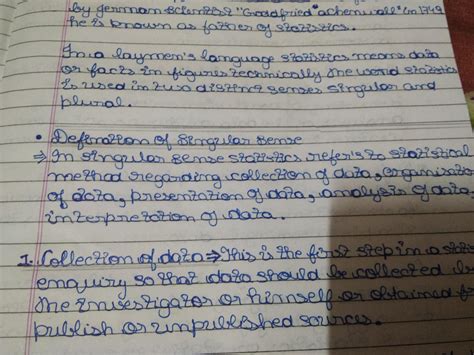 by german scientist "Goodfried achenwall" in 1749
he is known as father of statistics.
In a laymen's language statistics means data
or facts in figures technically the word statistics
is used in two distinct senses singular and
plural.
• Definition of Singular sense
⇒ In singular sense statistics refer's to statistical
method regarding collection of data, organisatio
of data, presentation of data, analysis of data
interpretation of data.
1. Collection of data ⇒ This is the first step in a stati
enquiry so that data should be collected
the investigator or himself or obtained fr
publish or unpublished sources.